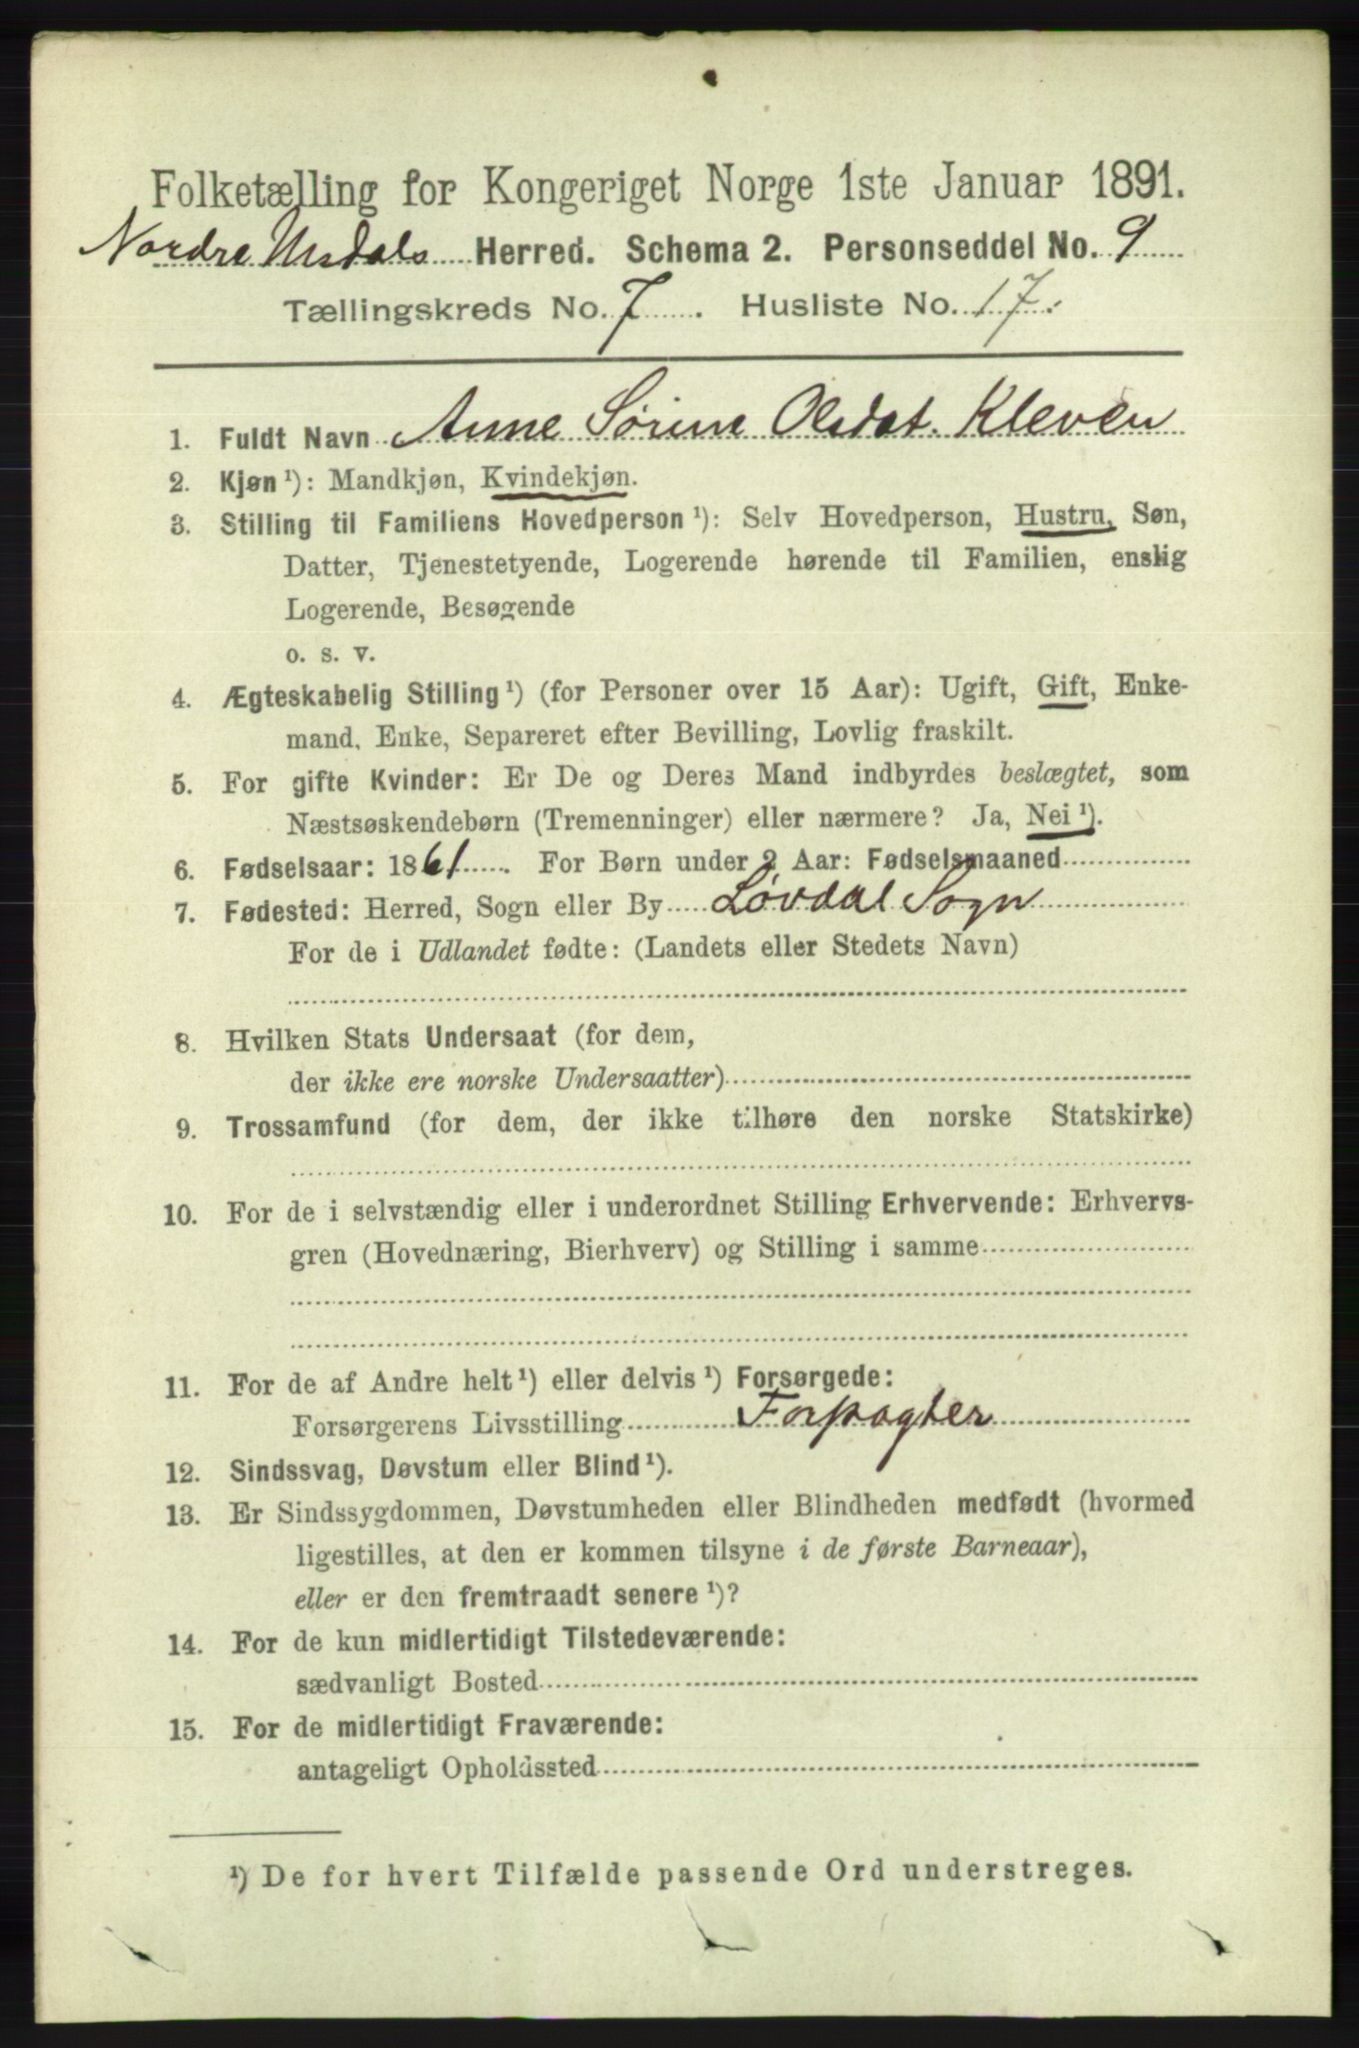 Folketælling for Kongeriget Norge 1ste Januar 1891.
Nordre Undals Herred. Schema 2. Personseddel No. 9
Tællingskreds No. 7. Husliste No. 17.
1. Fuldt Navn Anne Sørine Olsdat. Kleven
2. Kjøn ¹): Mandkjøn, Kvindekjøn.
3. Stilling til Familiens Hovedperson ¹): Selv Hovedperson, Hustru, Søn,
Datter, Tjenestetyende, Logerende hørende til Familien, enslig
Logerende, Besøgende
o. s. v.
4. Ægteskabelig Stilling ¹) (for Personer over 15 Aar): Ugift, Gift, Enke-
mand, Enke, Separeret efter Bevilling, Lovlig fraskilt.
5. For gifte Kvinder: Er De og Deres Mand indbyrdes beslægtet, som
Næstsøskendebørn (Tremenninger) eller nærmere? Ja, Nei ¹).
6. Fødselsaar: 1861. For Børn under 2 Aar: Fødselsmaaned
7. Fødested: Herred, Sogn eller By Løvdal Sogn
For de i Udlandet fødte: (Landets eller Stedets Navn)
8. Hvilken Stats Undersaat (for dem,
der ikke ere norske Undersaatter)
9. Trossamfund (for dem, der ikke tilhøre den norske Statskirke)
10. For de i selvstændig eller i underordnet Stilling Erhvervende: Erhvervs-
gren (Hovednæring, Bierhverv) og Stilling i samme
11. For de af Andre helt ¹) eller delvis ¹) Forsørgede:
Forsørgerens Livsstilling Forpagter
12. Sindssvag, Døvstum eller Blind ¹).
13. Er Sindssygdommen, Døvstumheden eller Blindheden medfødt (hvormed
ligestilles, at den er kommen tilsyne i de første Barneaar),
eller er den fremtraadt senere ¹)?
14. For de kun midlertidigt Tilstedeværende:
sædvanligt Bosted
15. For de midlertidigt Fraværende:
antageligt Opholdssted
¹) De for hvert Tilfælde passende Ord understreges.